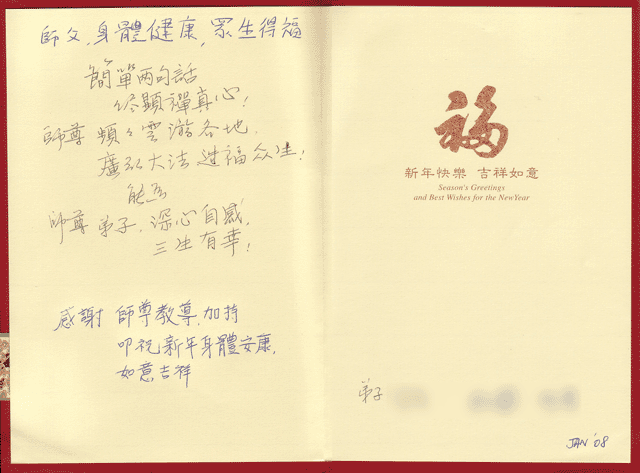 師父,身體健康,眾生得福
簡單两句話
終顯禪真心!
師尊 頻々雲游各地,
廣弘大法 造福众生!
能為
師尊 弟子,深心自感,
三生有幸!
感謝 師尊教導,加持
叩祝新年身體安康,
如意吉祥
福
新年快樂 吉祥如意
Season's Greetings
and Best Wishes for the New Year
弟子
JAN '08